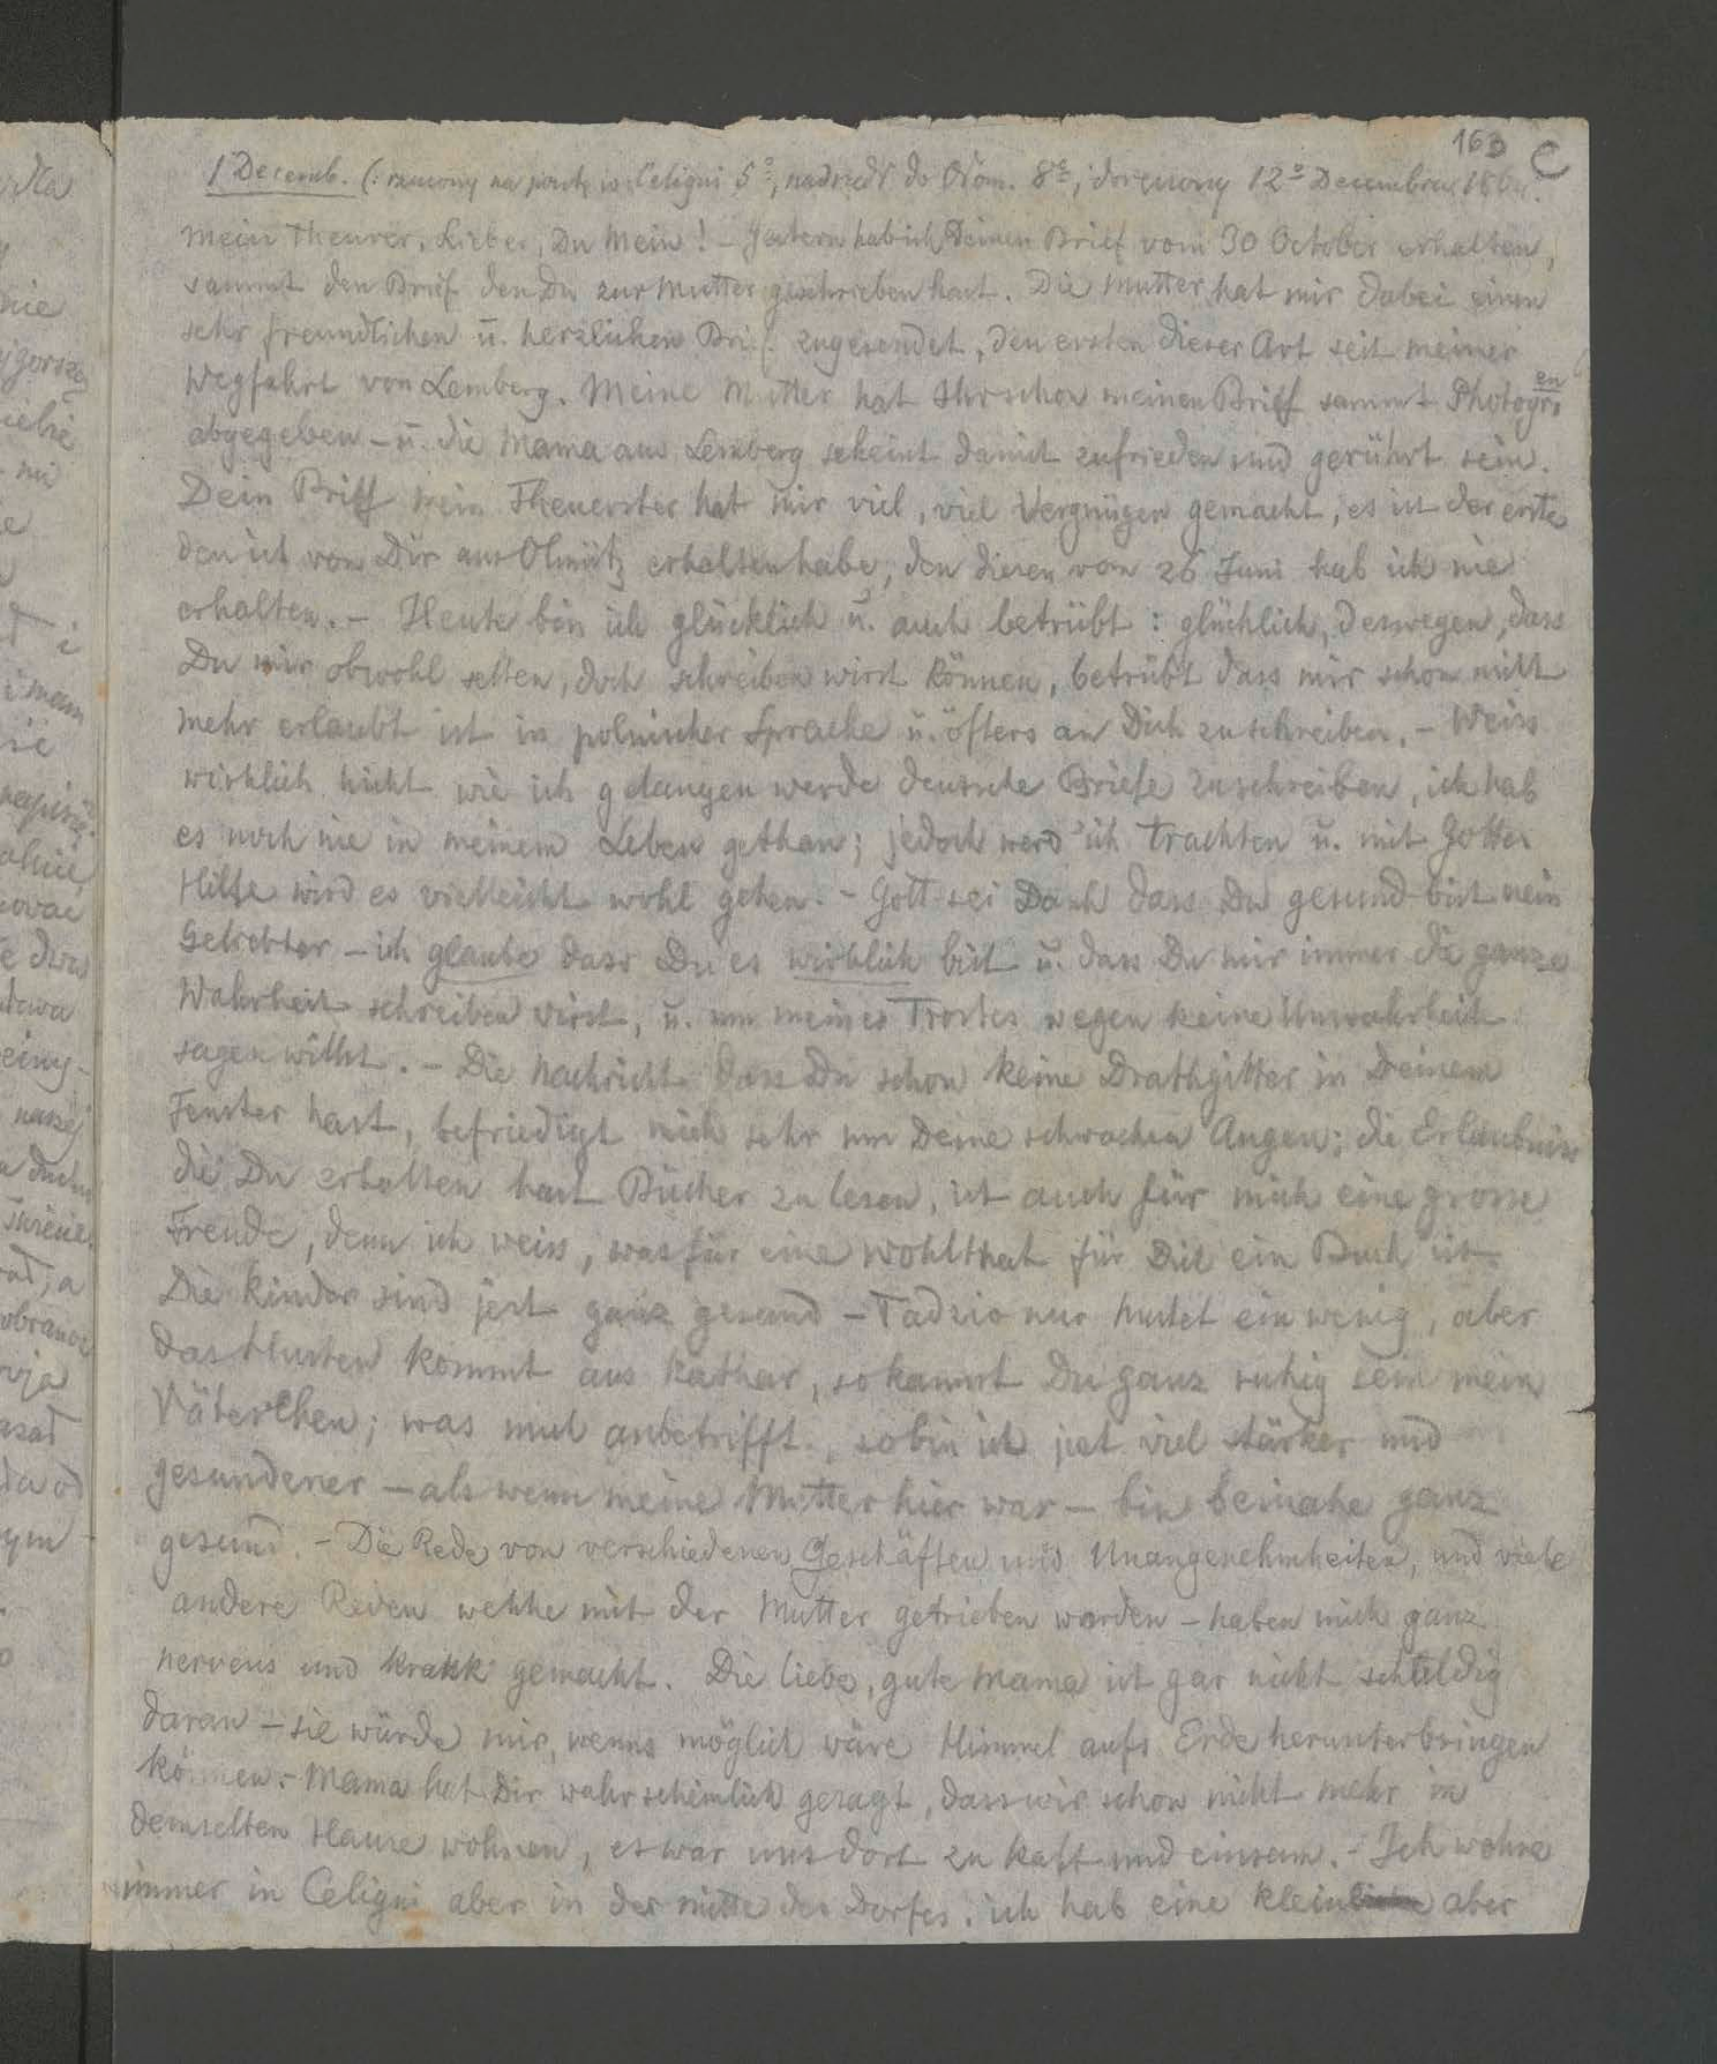 163 C
1 Decemb. (: rzucony na pocztę w Celigni 5º, nadszedł do Ołom. 8º, doręczony 12º Decembra 186
Mein Theurer, Lieber, Du Mein! – Gestern hab ich Deinen Brief vom 30 October erhalten,
sammt den Brief den Du zur Mutter geschrieben hast. Die Mutter hat mir dabei einen
sehr freundlichen u. herzlichen Brief zugesendet, den ersten dieser Art seit meiner
Wegfahrt von Lemberg. Meine Mutter hat Ihr schon meinen Brief sammt Photogr.en
abgegeben – u. die Mama aus Lemberg scheint damit zufrieden und gerührt sein.
Dein Briff mein Theuerster hat mir viel, viel Vergnügen gemacht, es ist der erste
den ich von Dir aus Olmütz erhalten habe, den diesen vom 26 Juni hab ich nie
erhalten. – Heute bin ich glücklich u. auch betrübt: glücklich, deswegen, dass
Du mir obwohl selten, doch schreiben wirst können, betrübt dass mir schon nicht
mehr erlaubt ist in polnischer Sprache u. öfters an Dich zu schreiben. – Weiss
wirklich nicht wie ich gelangen werde deutsche Briefe zu schreiben, ich hab
es noch nie in meinem Leben gethan; jedoch werd ich trachten u. mit Gottes
Hilfe wird es vielleicht wohl gehen. – Gott sei Dank dass Du gesund bist mein
Geliebter – ich glaube dass Du es wirklich bist u. dass Du mir immer die ganze
Wahrheit schreiben wirst, u. um meines Trostes wegen keine Unwahrheit
sagen willst. – Die Nachricht dass Du schon keine Drathgitter in Deinem
Fenster hast, befriedigt mich sehr um Deine schwachen Augen; die Erlaubniss
die Du erhalten hast Bücher zu lesen, ist auch für mich eine grosse
Freude, denn ich weiss, was für eine Wohlthat für Dich ein Buch ist.
Die Kinder sind jezt ganz gesund – Tadzio nur hustet ein wenig, aber
das Husten kommt aus Kathar, so kannst Du ganz ruhig sein mein
Väterchen; was mich anbetrifft, so bin ich jezt viel stärker und
gesundener – als wenn meine Mutter hier war – bin beinahe ganz
gesund. – Die Rede von verschiedenen Geschäften und Unangenehmheiten, und viele
andere Reden welche mit der Mutter getrieben worden – haben mich ganz
nerveus und krank gemacht. Die liebe, gute Mama ist gar nicht schuldig
daran – sie würde mir, wenns möglich wäre Himmel aufs Erde herunterbringen
können. – Mama hat Dir wahrscheinlich gesagt, dass wir schon nicht mehr in
demselben Hause wohnen, es war uns dort zu kalt und einsam. – Ich wohne
immer in Celigni aber in der mitte des Dorfes. ich hab eine klein aber